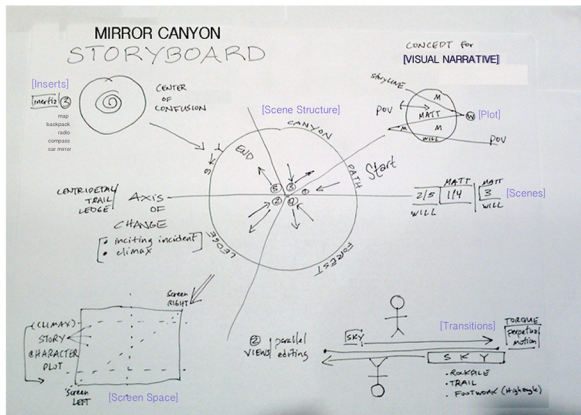 MIRROR CANYON
STORYBOARD
CONCEPT for
[VISUAL NARRATIVE]
[Inserts]
inertia ③
map
backpack
radio
compass
car mirror
CENTER
OF
CONFUSION
[Scene Structure]
CANYON
PATH
Start
FOREST
LEDGE
END
storyline
POV
M
MATT
M
WILL
W
[Plot]
POV
CENTRIPETAL/
TRAIL
LEDGE
AXIS
OF
CHANGE
• inciting incident
• climax
MATT
MATT
2/5
1/4
3
WILL
WILL
[Scenes]
Screen
RIGHT
(CLIMAX)
STORY
CHARACTER
PLOT
Screen
LEFT
[Screen Space]
② parallel
VIEWS editing
SKY
[Transitions]
TORQUE
perpetual
motion
SKY
• ROCKPILE
• TRAIL
• FOOTWORK (High angle)